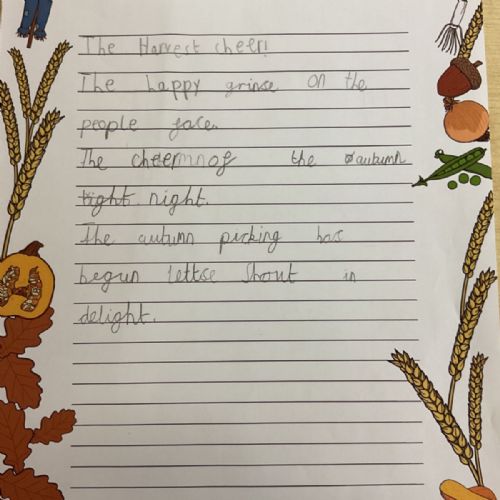 The Harvest cheer!
The happy grinse on the
people face.
The cheer of the autumn
tight night.
The autumn picking has
begun lettse Shout in
delight.